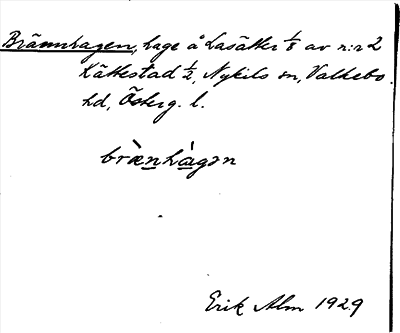 Brännhagen, hage å Lasätter 1/8 av n:r 2
Kättestad 1/2, Nykils sn, Valkebo
hd, Österg. l.
brὰnhágən
Erik Alm 1929